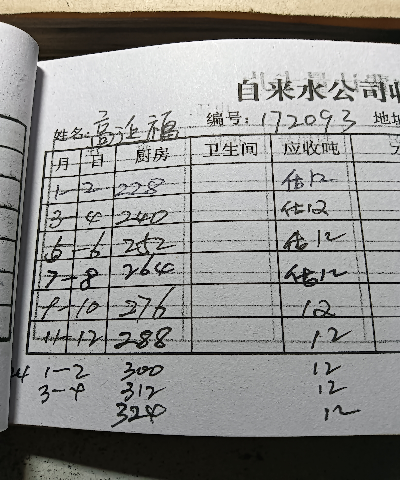 自来水公司收
姓名: 高 福 编号: 172093 地址
月 日 厨房 卫生间 应收吨
1-2 228 估12
3-4 240 估12
5-6 252 估12
7-8 264 估12
9-10 276 12
11-12 288 12
1-2 300 12
3-4 312 12
324 12